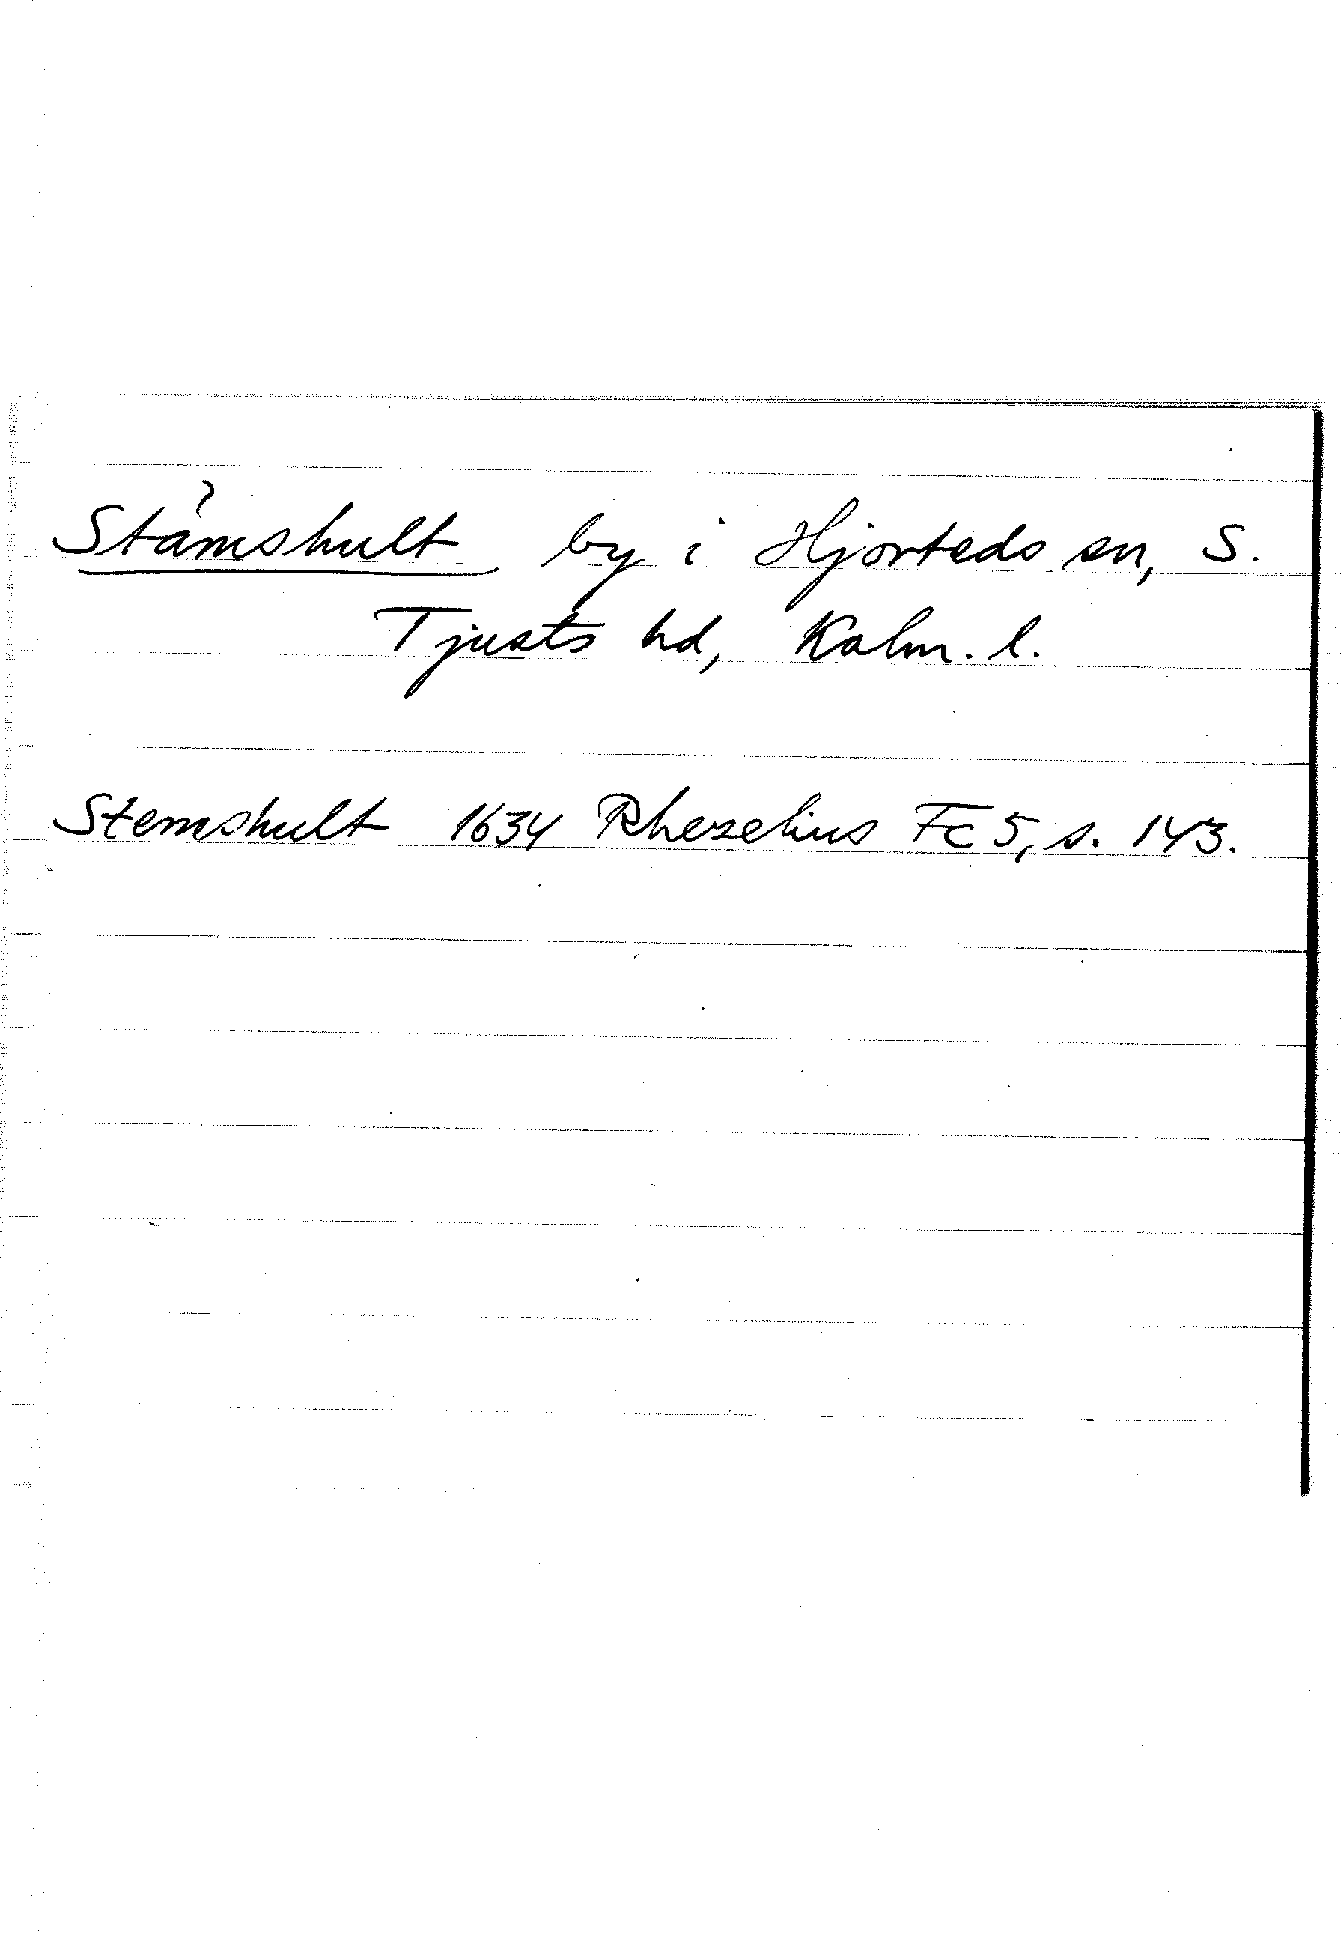 Stämshult by i Hjorteds sn, S.
Tjusts hd, Kalm. l.
Stemshult 1634 Rhezelius Fc 5, s. 143.